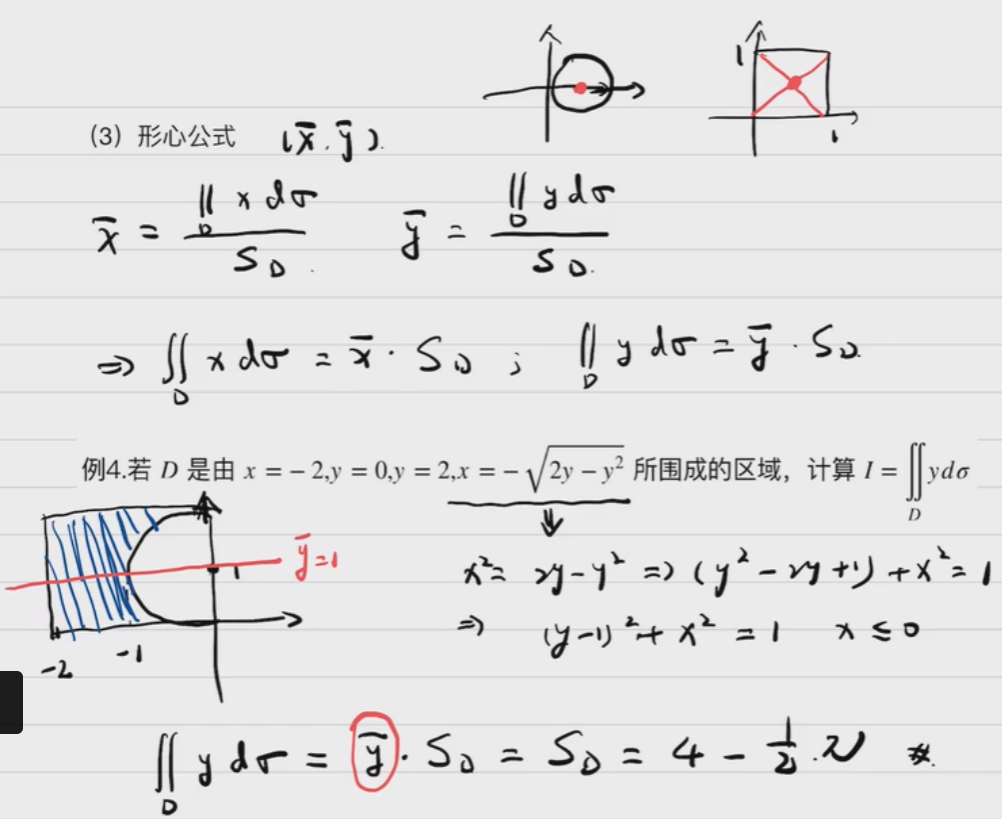 1
1
(3) 形心公式 (x̄, ȳ).
x̄ = ∬_D x dσ / S_D . ȳ = ∬_D y dσ / S_D.
⇒ ∬_D x dσ = x̄ · S_D ; ∬_D y dσ = ȳ · S_D.
例4.若 D 是由 x = − 2,y = 0,y = 2,x = − √(2y − y²) 所围成的区域，计算 I = ∬_D ydσ
ȳ=1
1
-2 -1
x² = 2y − y² ⇒ (y² − 2y + 1) + x² = 1
⇒ (y−1)² + x² = 1 x ≤ 0
∬_D y dσ = ȳ · S_D = S_D = 4 − 1/2 · π